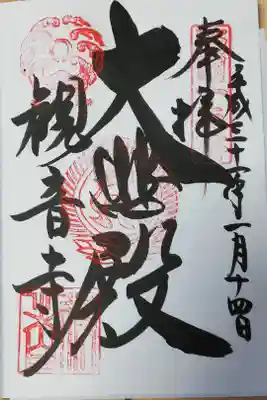 奉拝
平成三十一年一月十四日
大悲殿
観音寺